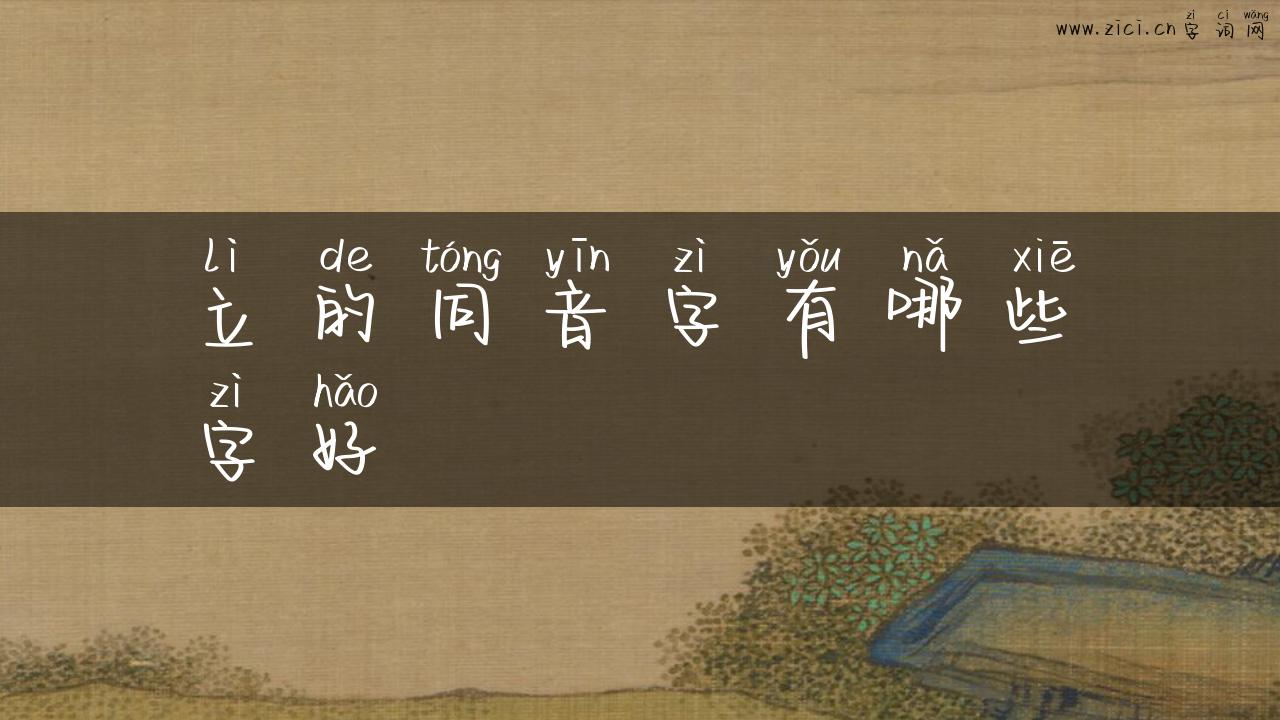 zì cí wǎng
www.zici.cn 字 词 网
lì de tóng yīn zì yǒu nǎ xiē
立 的 同 音 字 有 哪 些
zì hǎo
字 好